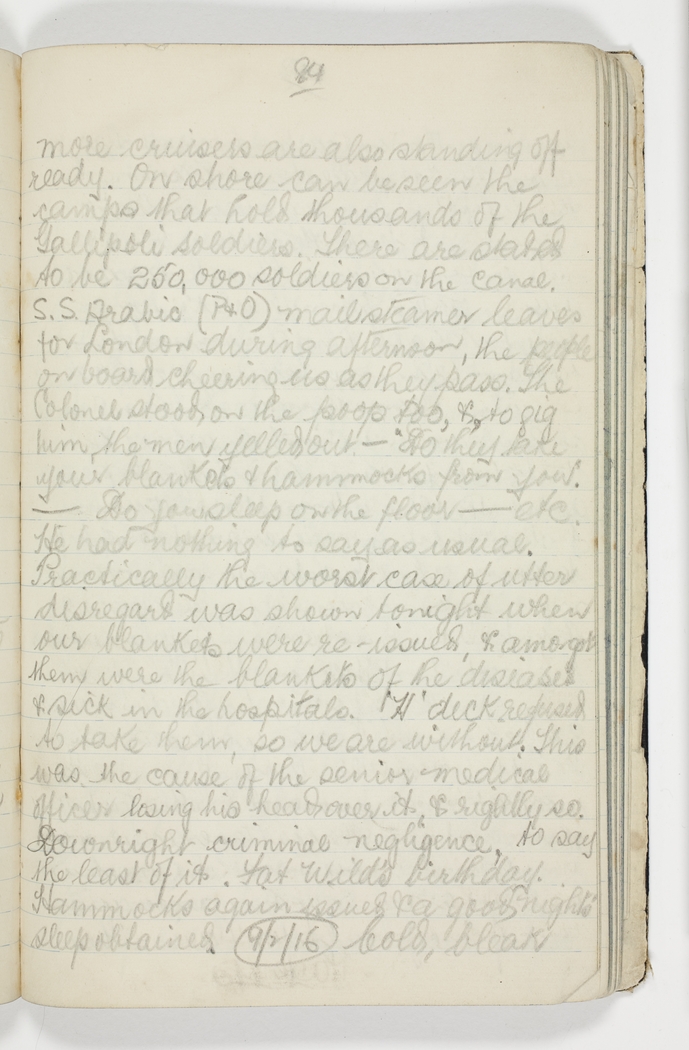 84
more cruisers are also standing off
ready. On shore can be seen the
camps that hold thousands of the
Gallipoli soldiers. There are stated
to be 250,000 soldiers on the canal.
S.S. Arabic (P&O) mail steamer leaves
for London during afternoon, the people
on board cheering us as they pass. The
Colonel stood on the poop too, & to gig
him, the men yelled out — "Do they take
your blankets & hammocks from you".
— Do you sleep on the floor — etc.
He had nothing to say as usual.
Practically the worst case of utter
disregard was shown tonight when
our blankets were re-issued, & amongst
them were the blankets of the diseased
& sick in the hospitals. "H" deck refused
to take them, so we are without. This
was the cause of the senior medical
officer losing his head over it, & rightly so.
Downright criminal negligence, to say
the least of it. Fat Wild's birthday.
Hammocks again issued & a good nights'
sleep obtained. 9/2/16 Cold, bleak